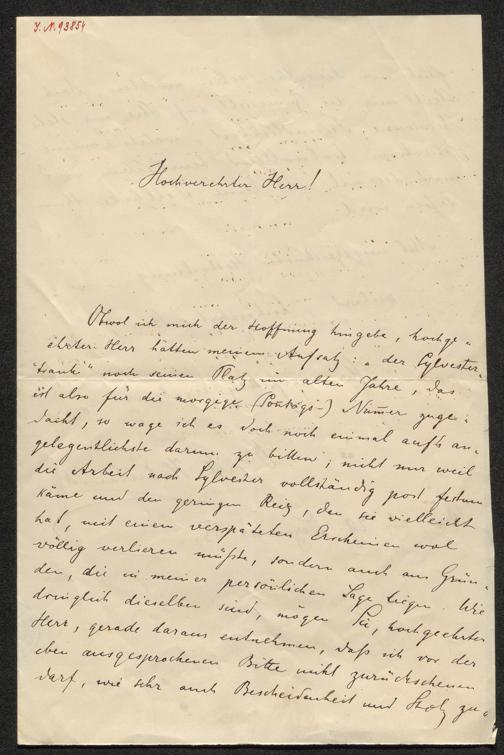 J. N. 93854
Hochverehrter Herr!
Obwol ich mich der Hoffnung hingebe, hochge-
ehrter Herr hätten meinem Aufsatz: „der Sylvester-
trank" noch seinen Platz im alten Jahre, das
ist also für die morgige (Sonntags-) Numer zuge-
dacht, so wage ich es doch noch einmal aufs an-
gelegentlichste darum zu bitten; nicht nur weil
die Arbeit nach Sylvester vollständig post festum
käme und den geringen Reiz, den sie vielleicht
hat, mit einem verspäteten Erscheinen wol
völlig verlieren müßte, sondern auch aus Grün-
den, die in meiner persönlichen Lage liegen. Wie
dringlich dieselben sind, mögen Sie, hochgeehrter
Herr, gerade daraus entnehmen, daß ich vor der
eben ausgesprochenen Bitte nicht zurückscheuen
darf, wie sehr auch Bescheidenheit und Stolz zu-